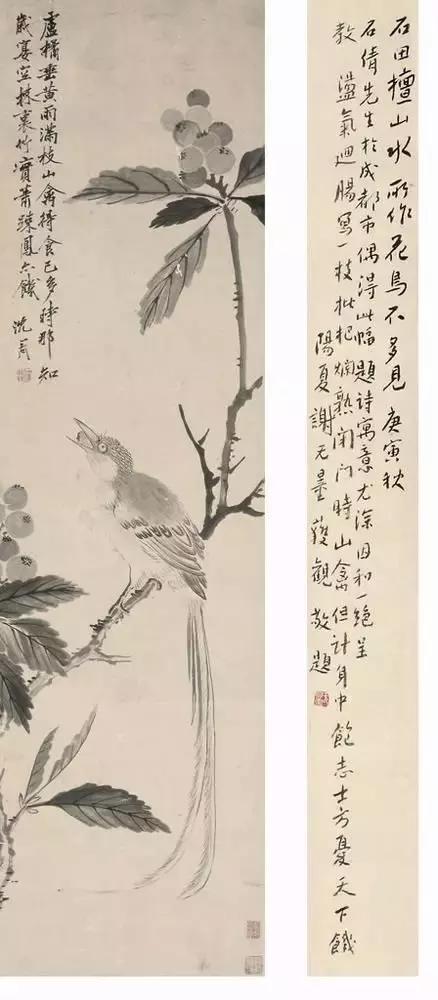 盧橘垂黄雨滿枝山禽得食已多時那知
歲宴空林裏竹實蕭疎鳳亦饑 沈周
石田檀山水所作花鳥不多見庚寅秋
石倩先生於成都市偶得此幅題詩寓意尤深因和一絶呈
教 盪氣迴腸寫一枝枇杷爛熟閉門時山禽但計身中飽志士方憂天下饑
陽夏謝无量獲觀敬題